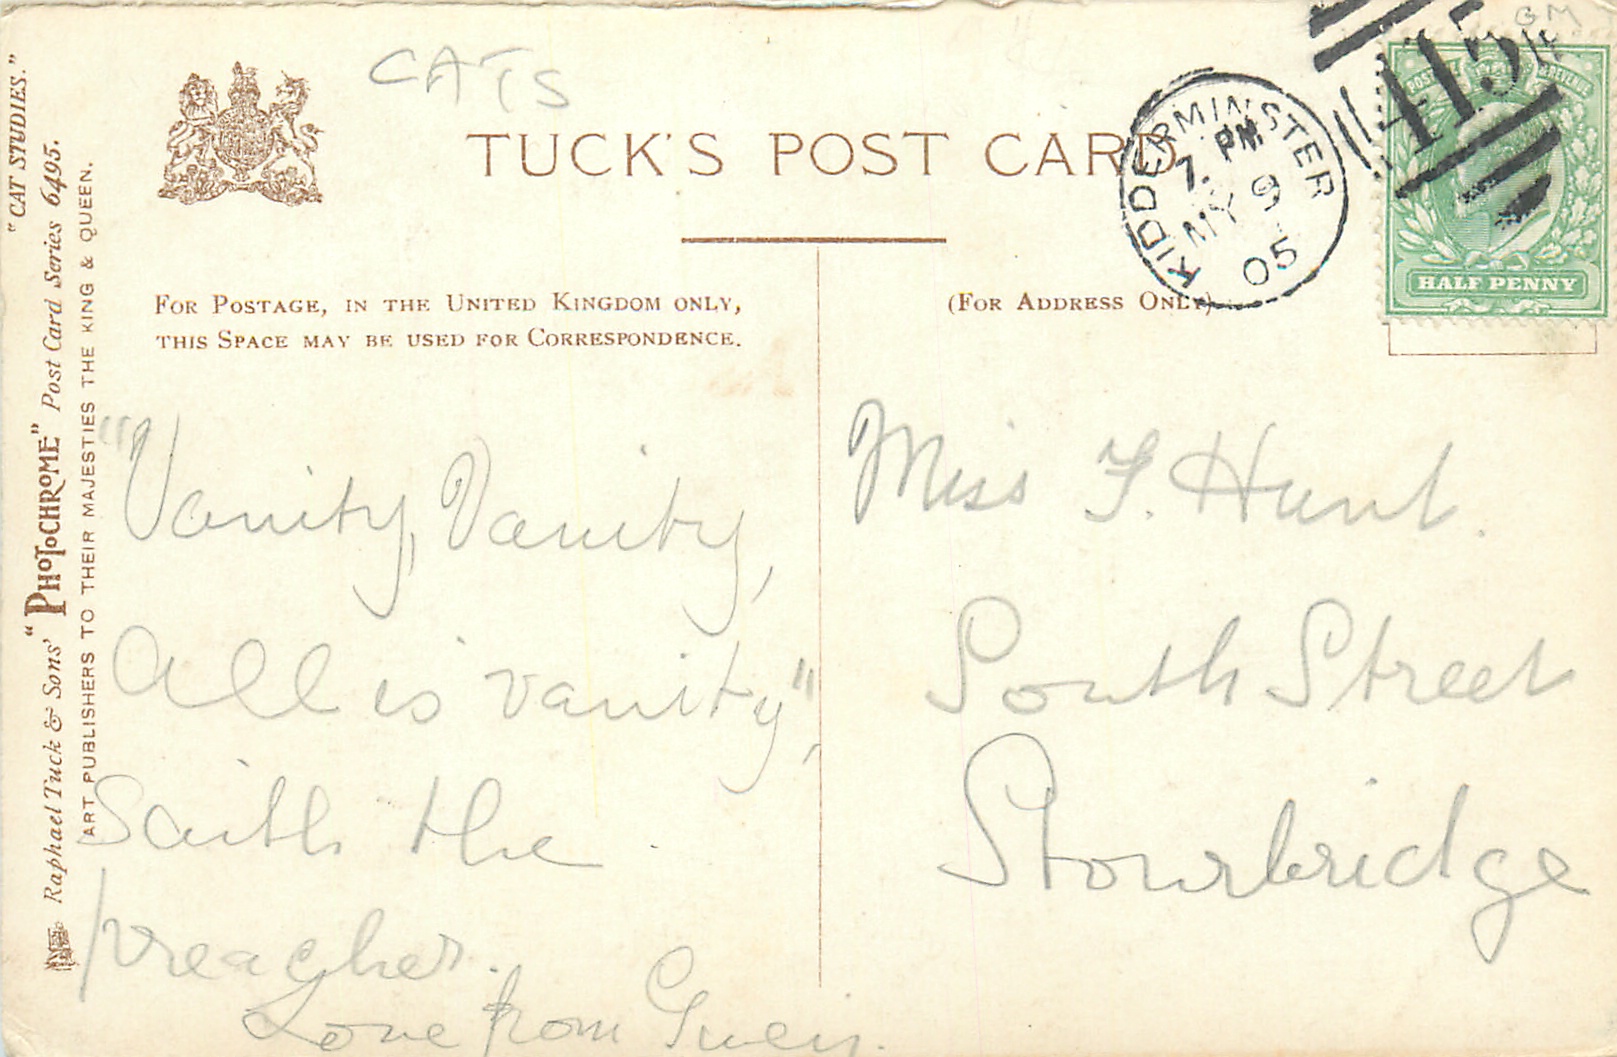 CATS
GM
TUCK'S POST CARD
KIDDERMINSTER
7. PM
MY 9
05
415
HALF PENNY
FOR POSTAGE, IN THE UNITED KINGDOM ONLY,
THIS SPACE MAY BE USED FOR CORRESPONDENCE.
(FOR ADDRESS ONLY)
"CAT STUDIES."
Raphael Tuck & Sons' "PHOTOCHROME" Post Card Series 6495.
ART PUBLISHERS TO THEIR MAJESTIES THE KING & QUEEN.
"Vanity, Vanity,
All is vanity",
Saith the
preacher.
Love from Gwen.
Miss F. Hunt.
South Street
Stourbridge